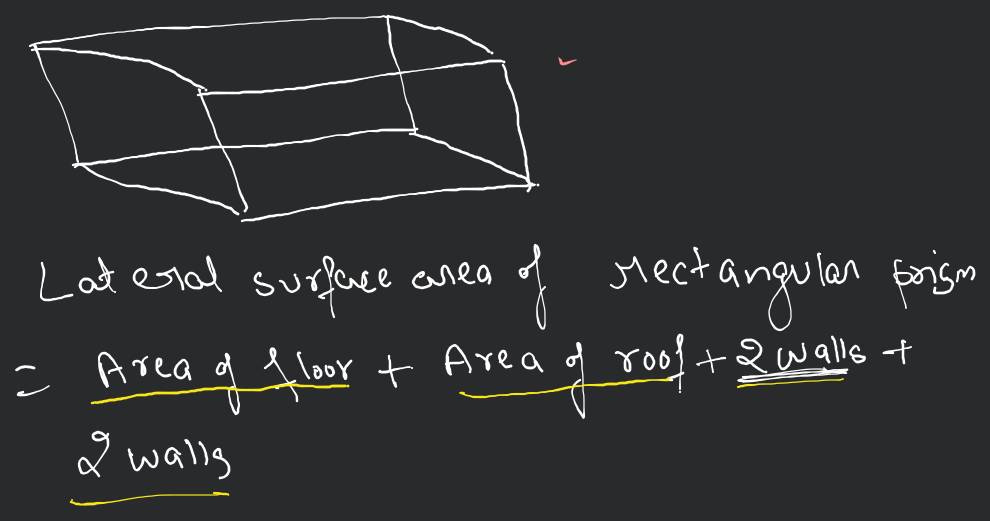 Lateral surface area of rectangular prism
= Area of floor + Area of roof + 2 walls +
2 walls